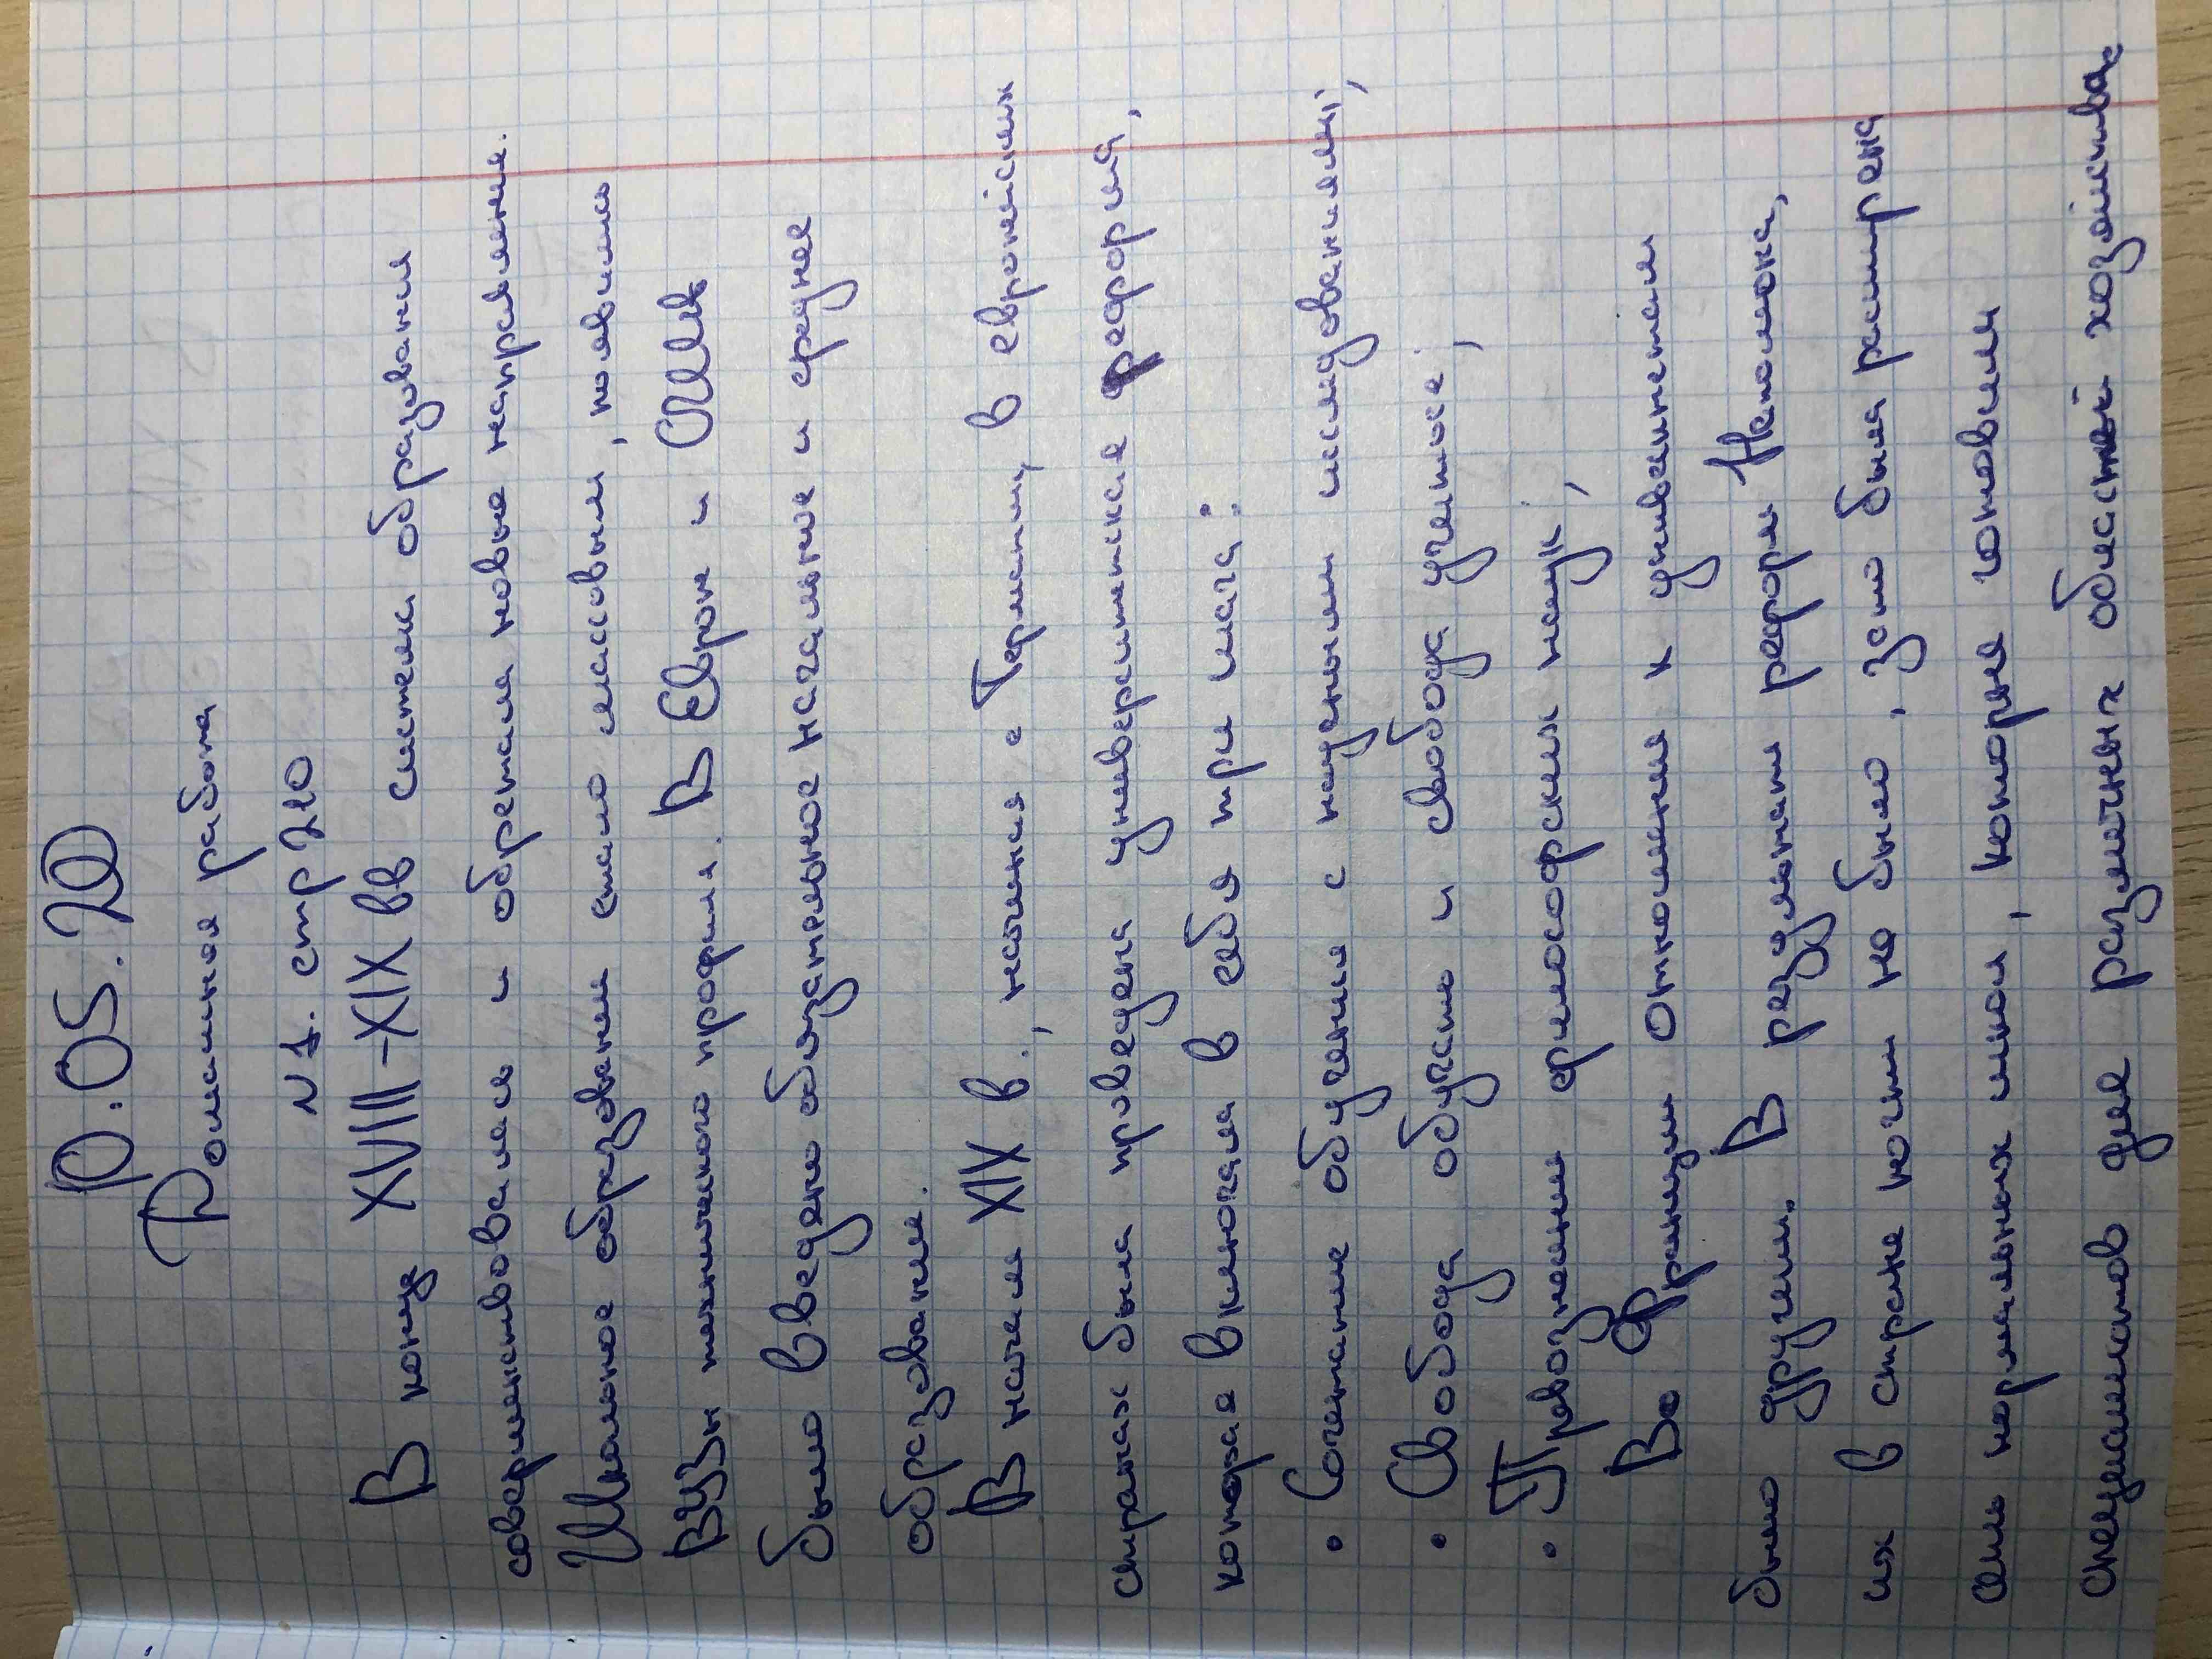 10.05.20
Домашняя работа
N 1. стр 210
В концу XVIII-XIX вв система образования
совершенствовалась и обретала новые направление.
Школьное образование стало массовым, появились
ВУЗы технического профиля. В Европе и США
было введено обязательное начальное и среднее
образование.
В начале XIX в., начиная с Германии, в европейских
странах была проведена университетская реформа,
которая включала в себя три шага:
• Сочетание обучение с научными исследованиями;
• Свобода обучать и свобода учиться;
• Провозглашение философских наук;
Во Франции отношение к университетам
было другим. В результате реформ Наполеона,
их в стране почти не было, зато была расширена
сеть нормальных школ, которые готовили
специалистов для различных областей хозяйства.